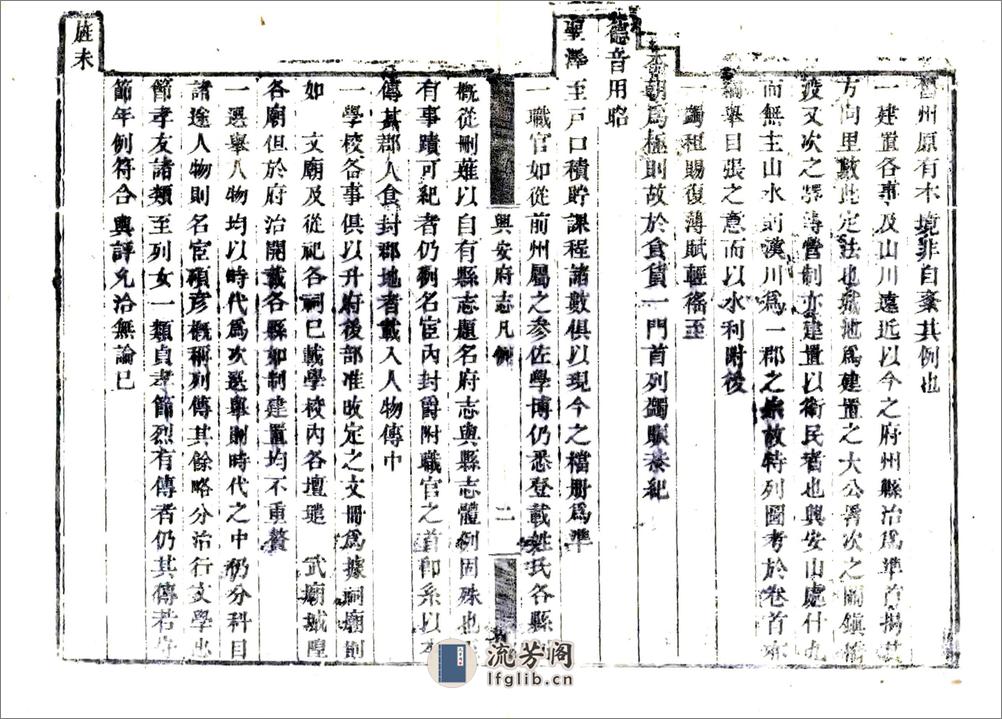 州原有本境非自棄其例也
一建置各事及山川遠近以今之府州縣治為準首揭其
方向里數此定法也城池為建置之大公署次之關鎮橋
渡又次之營制亦建置以衛民者也興安山處什九
而無主山水則漢川為一郡之故特列圖考於卷首亦
綱舉目張之意而以水利附後
一蠲租賜復薄賦輕徭至
本朝為極則故於食貨一門首列蠲賑恭紀
德音用昭
聖澤至戶口積貯課程諸數俱以現今之檔冊為準
一職官如從前州屬之參佐學博仍悉登載姓氏各縣
概從刪薙以自有縣志題名府志與縣志體例固殊也
有事蹟可紀者仍列名宦內封爵附職官之首即系以本
傳其郡人食封郡地者載入人物傳中
一學校各事俱以升府後部准改定之文冊為據祠廟則
如 文廟及從祀各祠已載學校內各壇壝 武廟城隍
各廟但於府治開載各縣如制建置均不重贅
一選舉人物均以時代為次選舉則時代之中仍分科目
諸途人物則名宦碩彥概稱列傳其餘略分治行文學忠
節孝友諸類至列女一類貞孝節烈有傳者仍其傳若
節年例符合輿評允洽無論已
旌未
興安府志凡例
二
流芳阁
lfglib.cn